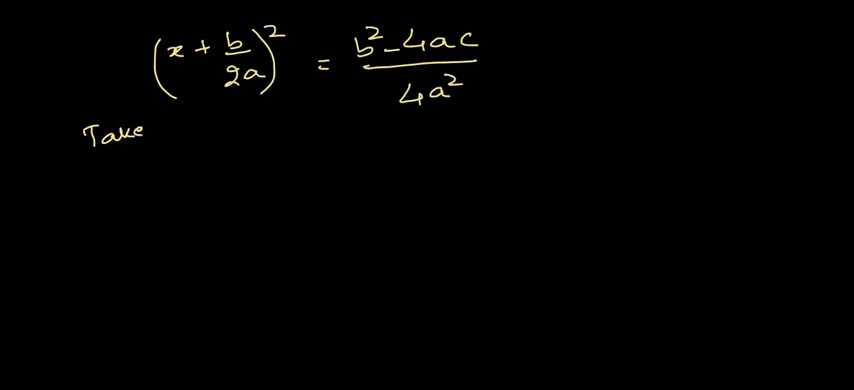 (x + b/2a)² = b² - 4ac / 4a²
Take